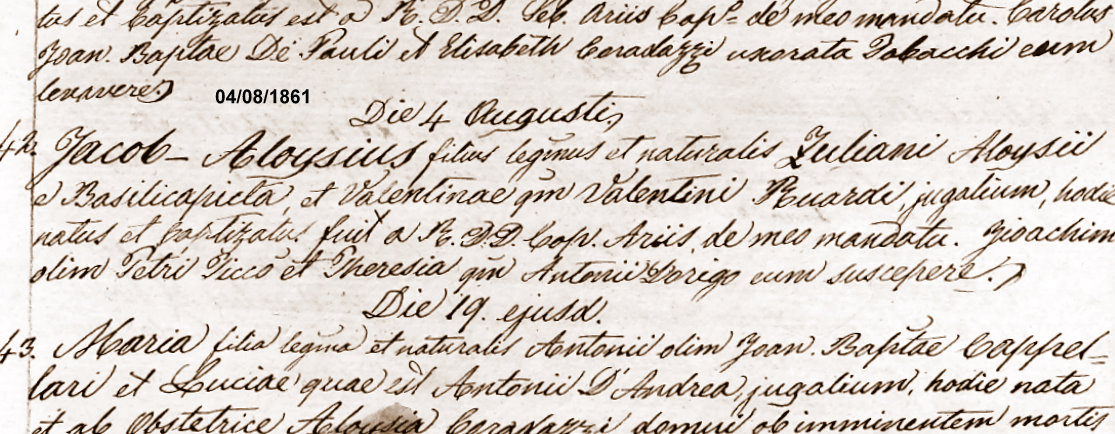 tus et Baptizatus est a R. D. D. Seb. Ariis Cap.º de meo mandatu. Carolus
Joan. Baptae De Pauli et Elisabeth Coradazzi uxorata Tobacchi eum
levavere.
04/08/1861
Die 4 Augusti,
42. Jacob - Aloysius filius legmus et naturalis Juliani Aloysii
e Basilicapicta, et Valentinae qm Valentini Ruardi, jugalium, hodie
natus et baptizatus fuit a R. D. D. Cop. Ariis, de meo mandatu. Gioachim
olim Petri Picco et Theresia qm Antonii Dorigo eum suscepere.
Die 19. ejusd.
43. Maria filia legma et naturalis Antonii olim Joan. Baptae Cappel=
lari et Luciae quae est Antonii D'Andrea, jugalium, hodie nata
et ab Obstetrice Aloysia Coradazzi domui ob imminentem mortis